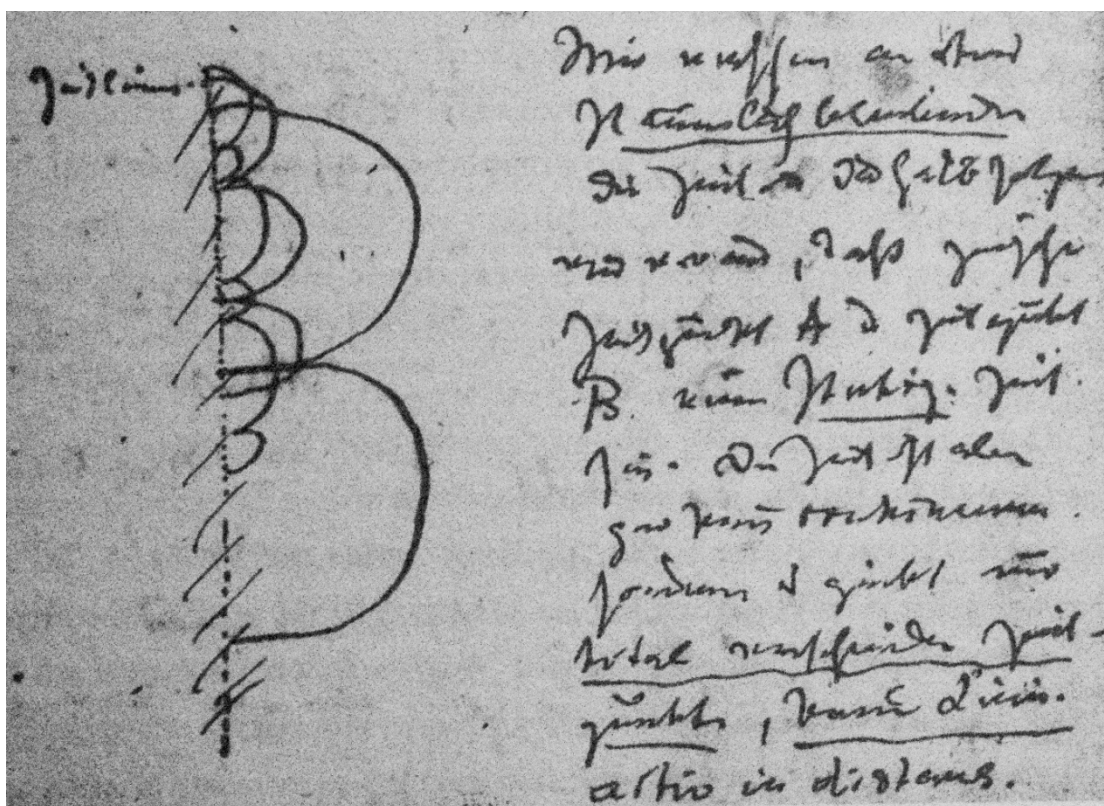 Zeitlinie.
Wir messen an etwas
Räumlich bleibendem
die Zeit u deshalb setzen
wir voraus, daß zwischen
Zeitpunkt A u Zeitpunkt
B eine stetig. Zeit
sei. Die Zeit ist aber
gar kein continuum.
sondern es giebt nur
total verschiedene Zeit-
punkte, keine Linie.
actio in distans.